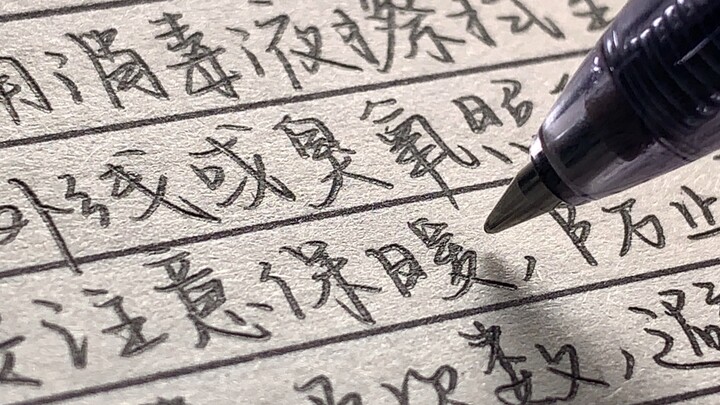 用消毒液擦拭
外线或臭氧照
注意保暖，防止
次数，温